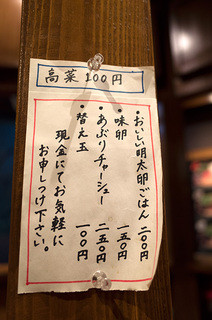 高菜 100円
・おいしい明太卵ごはん 二〇〇円
・味卵 一五〇円
・あぶりチャーシュー 二五〇円
・替え玉 一〇〇円
現金にてお気軽に
お申しつけ下さい。